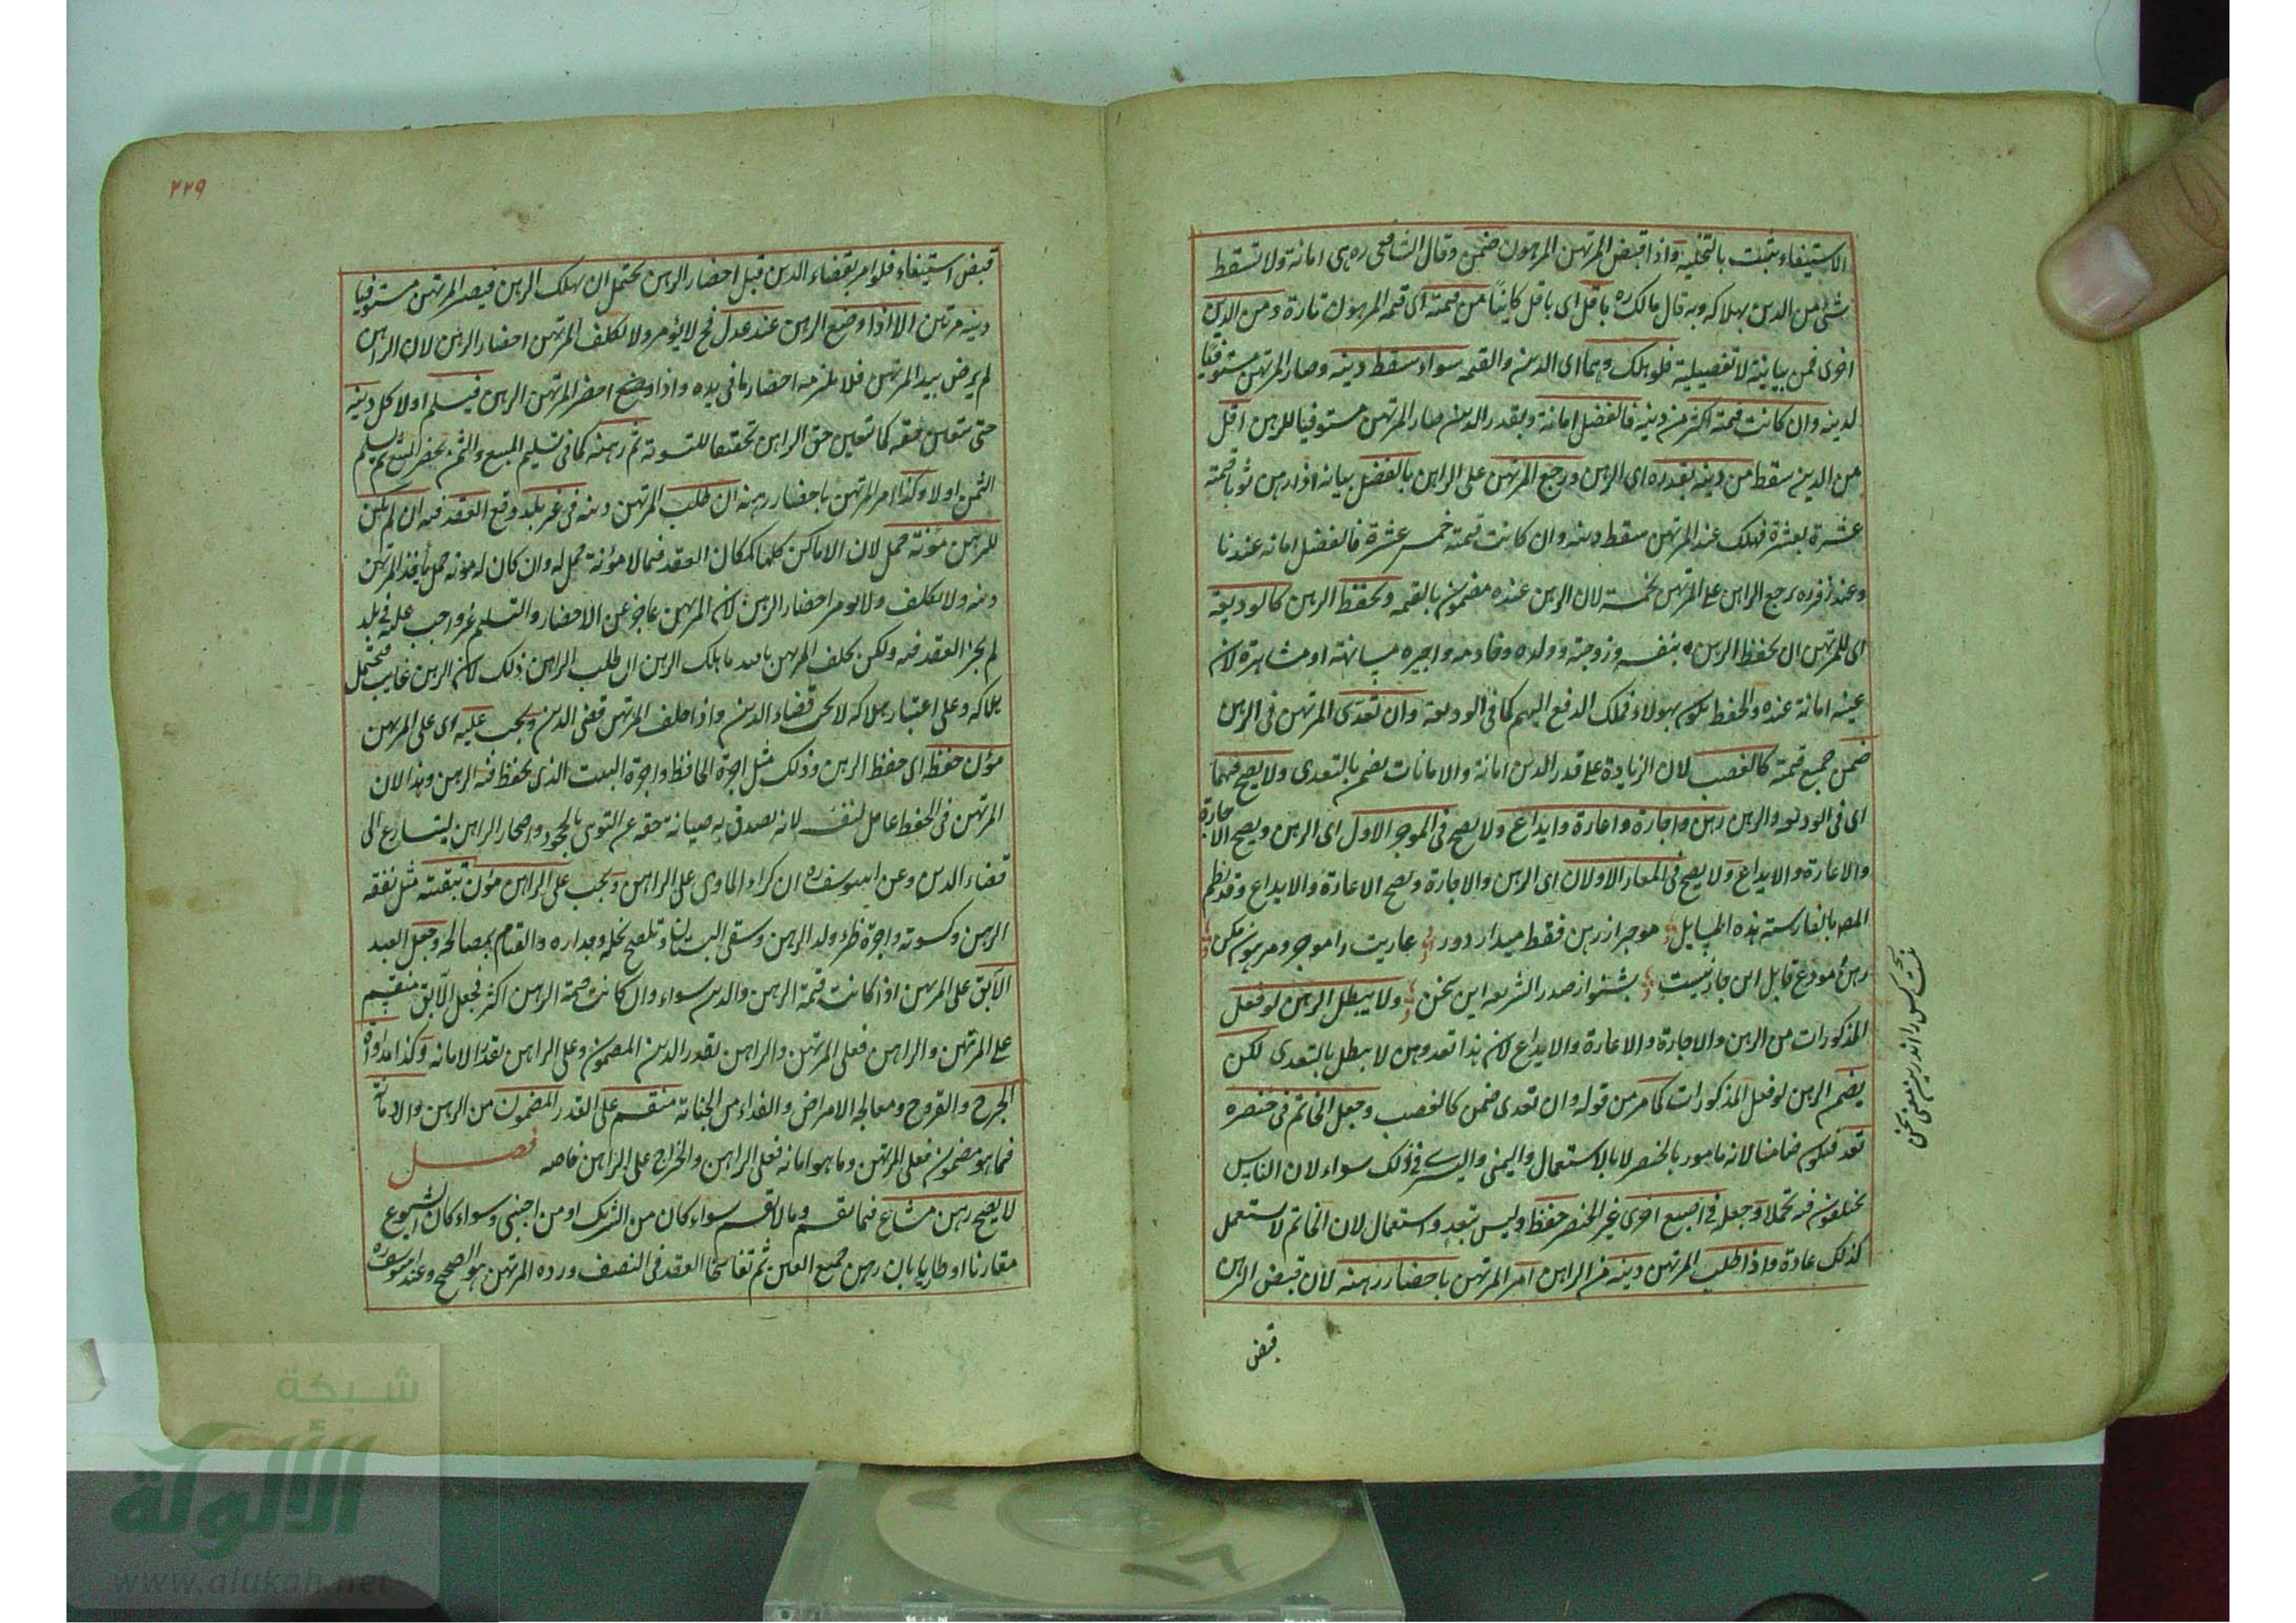 الاستيفاء يثبت بالتخلية واذا قبض المرتهن المرهون ضمن وقال الشافعى ره هى امانة ولا تسقط
شئ من الدين بهلاكه وبه قال مالك ره باقل اى باقل كاينا من قيمته اى قيمة المرهون تارة ومن الدين
اخرى فمن بيانية لا تفصيلية فلو هلك وهما اى الدين والقيمة سواء سقط دينه وصار المرتهن مستوفيا
لدينه وان كانت قيمته اكثر من دينه فالفضل امانة وبقدر الدين صار المرتهن مستوفيا للرهن اقل
من الدين سقط من دينه بقدره اى الرهن ورجع المرتهن على الراهن بالفضل بيانه اذا رهن ثوبا قيمته
عشرة بعشرة فهلك عند المرتهن سقط دينه وان كانت قيمته خمس عشرة فالفضل امانة عندنا
وعند زفر ره يرجع الراهن على المرتهن بخمسة لان الرهن عنده مضمون بالقيمة ويحفظ الرهن كالوديعة
اى للمرتهن ان يحفظ الرهن بنفسه وزوجته وولده وخادمه واجيره مسانهة او مشاهرة لان
عينه امانة عنده والحفظ يكون بهولاء فملك الدفع اليهم كما فى الوديعة وان تعدى المرتهن فى الرهن
ضمن جميع قيمته كالغصب لان الزيادة على قدر الدين امانة والامانات يضمن بالتعدى ولا يصح فيهما
اى فى الوديعة والرهن رهن واجارة واعارة وايداع ولا يصح فى الموجر الاول اى الرهن ويصح الاجارة
والاعارة والايداع ولا يصح فى المعار الاولان اى الرهن والاجارة ويصح الاعارة والايداع وقد نظم
المص بالفارسية هذه المسايل موجر از رهن فقط ميدار دور عاريت را موجر ومرهون مكن
رهن مودع قابل اين جار نيست بشنو از صدر الشريعه اين سخن ولا يبطل الرهن لو فعل
المذكورات من الرهن والاجارة والاعارة والايداع لان هذا تعد وهن لا يبطل بالتعدى لكن
يضمن الرهن لو فعل المذكورات كما مر من قوله وان تعدى ضمن كالغصب وجعل الخاتم فى خنصره
تعد فيكون ضامنا لانه مامور بالخنصر لا بالاستعمال واليمنى واليسرى فى ذلك سواء لان الناس
يختلفون فيه تجملا وجعله فى اصبع اخرى غير الخنصر حفظ وليس بتعد واستعمال لان الخاتم لا يستعمل
كذلك عادة واذا طلب المرتهن دينه من الراهن امر المرتهن باحضار رهنه لان قبض الرهن
قبض
٢٢٩
قبض استيفاء فلو امر بقضاء الدين قبل احضار الرهن يحتمل ان يهلك الرهن فيصير المرتهن مستوفيا
دينه مرتين الا اذا وضع الرهن عند عدل فح لا يؤمر ولا يكلف المرتهن احضار الرهن لان الراهن
لم يرض بيد المرتهن فلا يلزمه احضار ما فى يده واذا احضر المرتهن الرهن فيسلم اولا كل دينه
حتى يتعين حقه كما تعين حق الراهن تحقيقا للتسوية ثم رهنه كما فى تسليم المبيع والثمن يحضر المبيع ثم يسلم
الثمن اولا وكذا امر المرتهن باحضار رهنه ان طلب المرتهن دينه فى غير بلد وقع العقد فيه ان لم يكن
للرهن مؤنة حمل لان الاماكن كلها كمكان العقد فيما لا مؤنة حمل له وان كان له مؤنة حمل ياخذ المرتهن
دينه ولا يكلف ولا يومر احضار الرهن لان المرتهن عاجز عن الاحضار والتسليم غير واجب عليه فى بلد
لم يجز العقد فيه ولكن يحلف المرتهن بالله ما هلك الرهن ان طلب الراهن ذلك لان الرهن غايب فيحتمل
هلاكه وعلى اعتبار هلاكه لا يجب قضاء الدين واذا حلف المرتهن قضى الدين ويجب عليه اى على المرتهن
مؤن حفظه اى حفظ الرهن وذلك مثل اجرة الحافظ واجرة البيت الذى يحفظ فيه الرهن وهذا لان
المرتهن فى الحفظ عامل لنفسه لانه يصدق به صيانة حقه عن التوى بالجحود واضجار الراهن ليتسارع الى
قضاء الدين وعن ابى يوسف ره ان كراء الماوى على الراهن ويجب على الراهن مؤن تبقيته مثل نفقة
الرهن وكسوته واجرة ظئر ولد الرهن وسقى البستان وتلقيح نخله وجداره والقيام بمصالحه وجعل العبد
الآبق على المرتهن اذا كانت قيمة الرهن والدين سواء وان كانت قيمة الرهن اكثر فجعل الآبق منقسم
على المرتهن والراهن فعلى المرتهن والراهن بقدر الدين المضمون وعلى الراهن بقدر الامانة وكذا مداواة
الجرح والقروح ومعالجة الامراض والفداء من الجناية منقسم على القدر المضمون من الرهن والامانة
فما هو مضمون فعلى المرتهن وما هو امانة فعلى الراهن والخراج على الراهن خاصه فصل
لا يصح رهن مشاع فيما يقسم وما لا يقسم سواء كان من الشريك او من اجنبى وسواء كان الشيوع
مقارنا او طاريا بان رهن جميع العين ثم تفاسخا العقد فى النصف ورده المرتهن هو الصحيح وعند ابى يوسف ره
شبكة
الألوكة
www.alukah.net